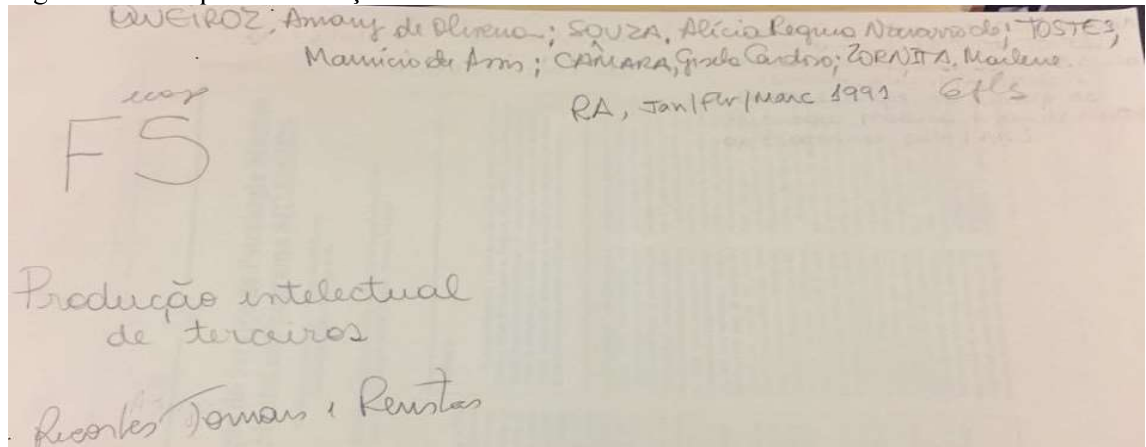 QUEIROZ, Amaury de Oliveira; SOUZA, Alícia Regina Navarro de; TOSTES,
Maurício de Assis; CÂMARA, Gisela Cardoso; ZORNITA, Marlene
RA, Jan/Fev/Marc 1991 6fls
FS
Produção intelectual
de terceiros
Recortes Jornais e Revistas